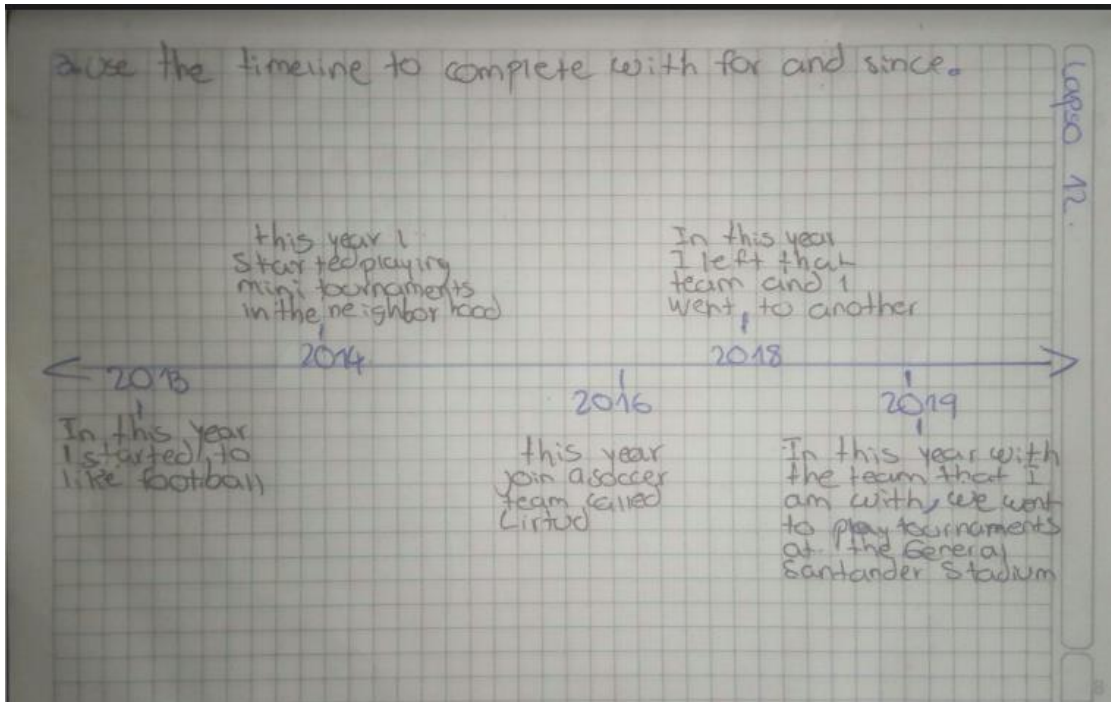 a. use the timeline to complete with for and since.
Lapso 12.
this year I
started playing
mini tournaments
in the neighborhood
In this year
I left that
team and I
went to another
2014
2018
2013
2016
2019
In this year
I started to
like football
this year
join a soccer
team called
Cirtud
In this year with
the team that I
am with, we went
to play tournaments
at the General
Santander Stadium